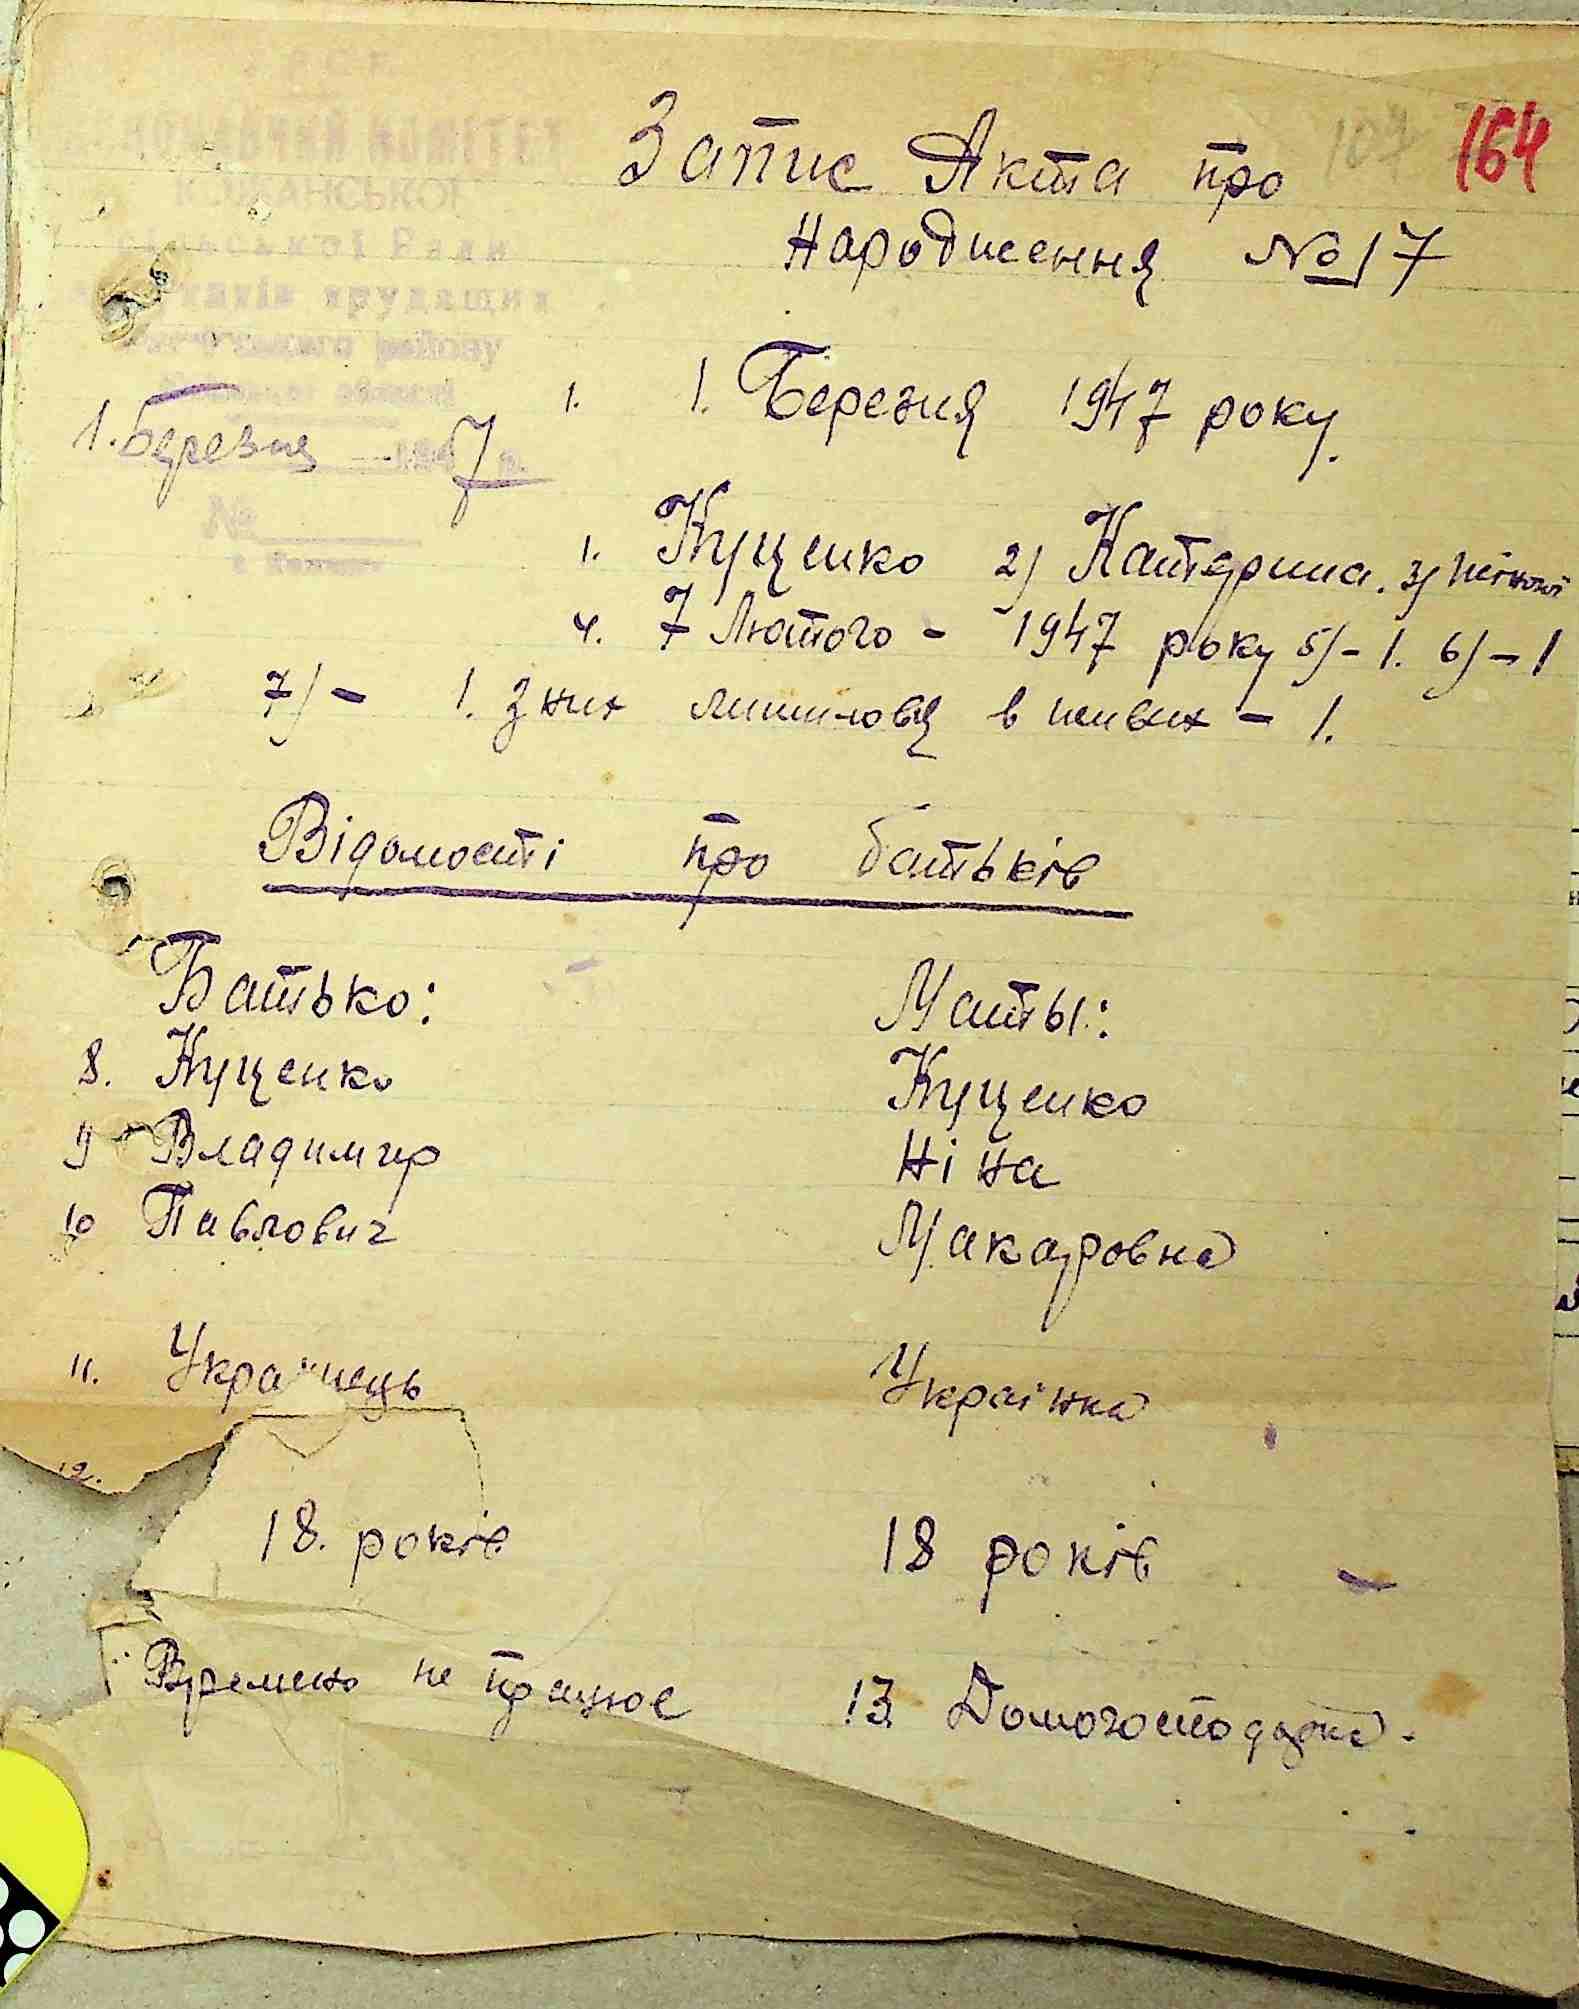 164
107
Запис Акта про
Народження №17
У Р С Р
КОМІТЕТ
сільської Ради
трудящих
району
області
1. Березня 1947 р.
№
1. 1. Березня 1947 року.
1. Куценко 2) Катерина. 3) жіночої
4. 7 Лютого - 1947 року 5) - 1. 6) - 1
7) - 1. З них лишиловь в живих - 1.
Відомості про батьків
Батько: Маты:
8. Куценко Куценко
9 Владимир Ніна
10 Павлович Макаровна
11. Украинець Украінка
12.
18. років 18 років
Времено не працює 13. Домогосподарка.